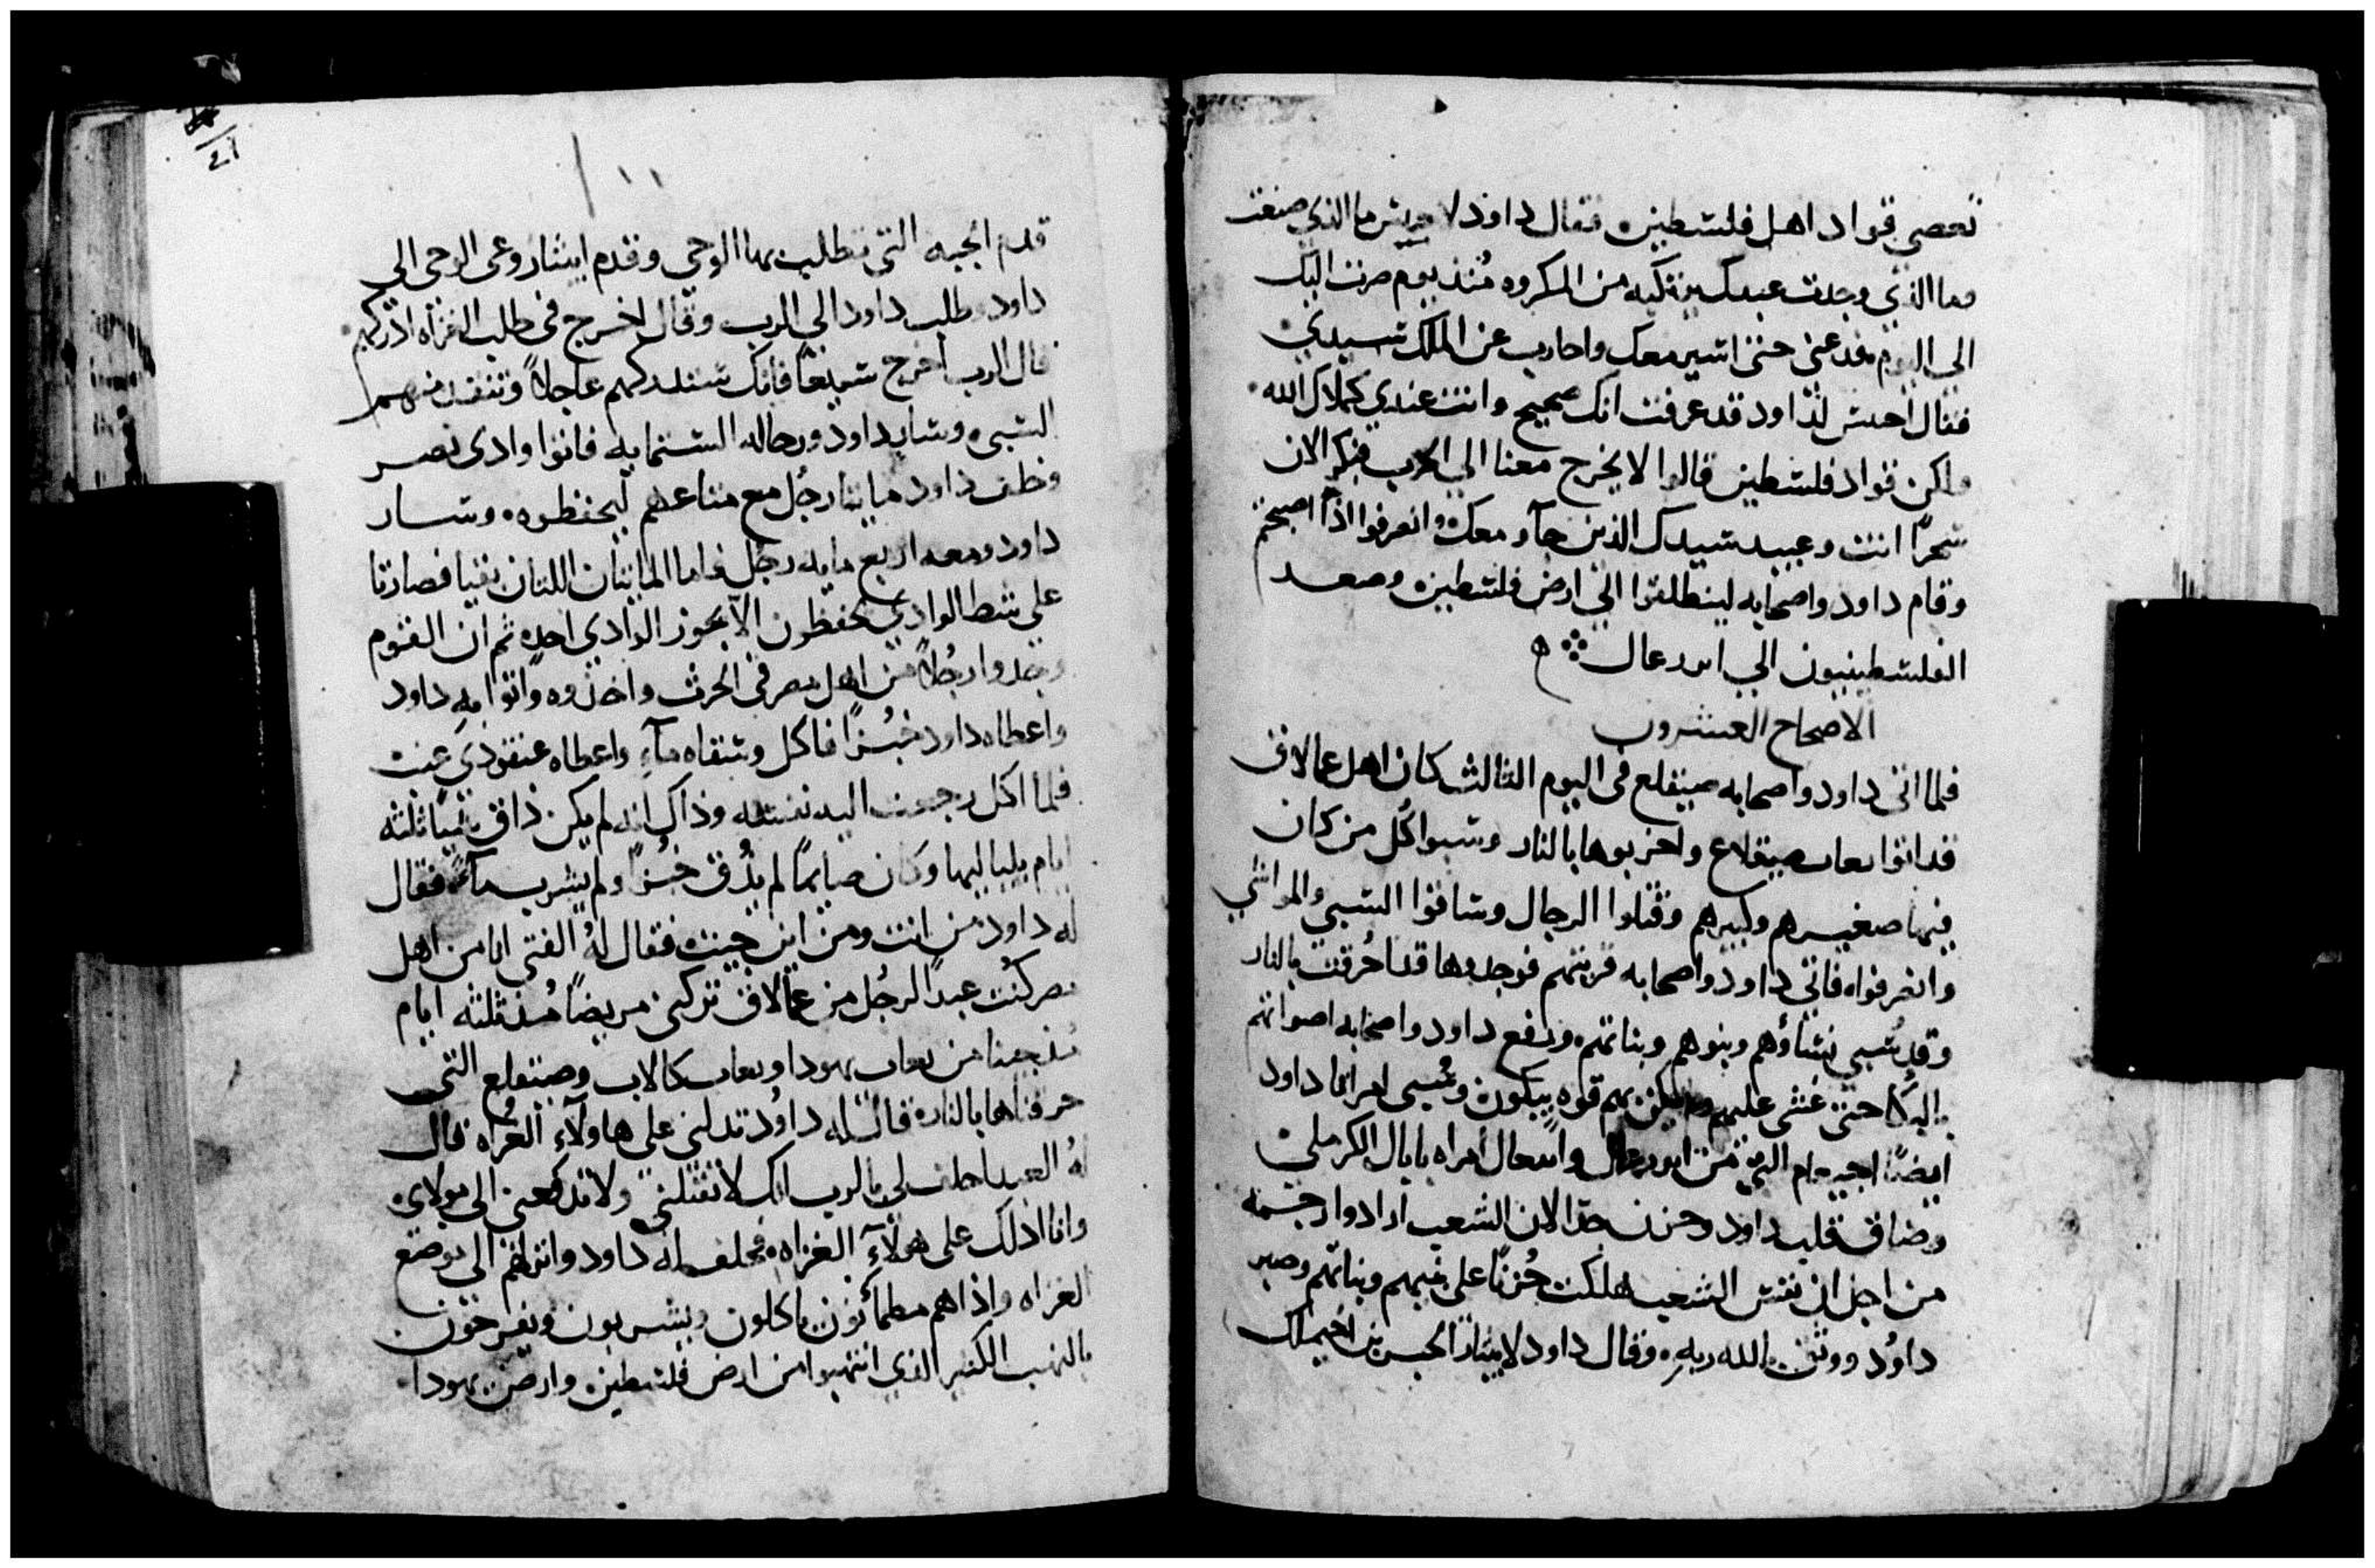 تعصى قواد اهل فلسطين فقال داود لاحيش ما الذي صنعت
وما الذي وجدت عبدك يرتكبه من المكروه مُنذ يوم صرت اليك
الى اليوم فدعنى حتى اسير معك واحارب عن الملك سيدي
فقال احيش لداود قد عرفت انك صحيح وانت عندي كملاك الله
ولكن قواد فلسطين قالوا لا يخرج معنا الي الحرب فبكر الان
سحرًا انت وعبيد سيدك الذين جآو معك وانصرفوا اذا اصبحتم
وقام داود واصحابه لينطلقوا الي ارض فلسطين وصعد
الفلسطينيون الي ايزرعال
الاصحاح العشرون
فلما اتى داود واصحابه صيقلع فى اليوم الثالث كان اهل عمالاق
قد اتوا صيقلاع واخربوها بالنار وسبوا كُل من كان
فيها صغيرهم وكبيرهم وقتلوا الرجال وساقوا السبى والمواشي
وانصرفواه فاتى داود واصحابه قريتهم فوجدوها قد احُرقت بالنار
وقد سُبى نسَاؤهم وبنوهم وبناتهم ورفع داود واصحابه اصواتهم
بالبكا حتى غشى عليهم ولم يكن بهم قوه يبكون وسُبى امراتا داود
ايضًا التي من ايزرعال وابيعال امراه نابال الكرملي
وضاق قلب داود وحزن جدا لان الشعب ارادوا رجمه
من اجل ان نفس الشعب هلكت حُزنًا على بنيهم وبناتهم وصبر
داوُد ووثق بالله ربه وقال داود لابيثار الحبر بن اخيمالك
٢١
قدم الجبه التي تطلب بها الوحي وقدم ابيثار وعى الوحى الى
داود وطلب داود الي الرب وقال اخرج في طلب الغزاه ادركهم
قال الرب اخرج سريعًا فانك ستدركهم عاجلًا وتنقذ منهم
السبى وسار داود ورجاله الستمايه فاتوا وادى بصر
وخلف داود مايتا رجُل مع متاعهم ليحفظوه وسار
داود ومعه اربع مايه رجل فاما المايتان اللتان بقيا فصارتا
على شط الوادي يحفظون الا يجوز الوادي احد ثم ان القوم
وجدوا رجُلًا من اهل مصر في الحرث واخذوه واتوا به داود
واعطاه داود خبُزًا فاكل وسقاه مآء واعطاه عنقودي عنب
فلما اكل رجعت اليه نفسه وذاك انه لم يكن ذاق شيًا ثلثه
ايام بلياليها وكان صايمًا لم يذُق خُبزًا ولم يشرب مآءً فقال
له داود من انت ومن اين جيت فقال لهُ الفتى انا من اهل
مصر كنُت عبدًا لرجُل من عمالاق تركنى مريضًا مُنذ ثلثه ايام
مُنذ جينا من يهودا كالاب وصيقلع التى
حرقناها بالنار قال له داوُد تدلنى على هاولآء الغزاه قال
لهُ العبد احلف لى بالرب انك لا تقتلنى ولا تدفعنى الى مولاى
وانا ادلك على هولآء الغزاه فحلف له داود وانزلهم الي موضع
الغزاه واذاهم مطمأنون ياكلون ويشربون ويفرحون
بالنهب الكثير الذي انتهبوا من ارض فلسطين وارض يهودا